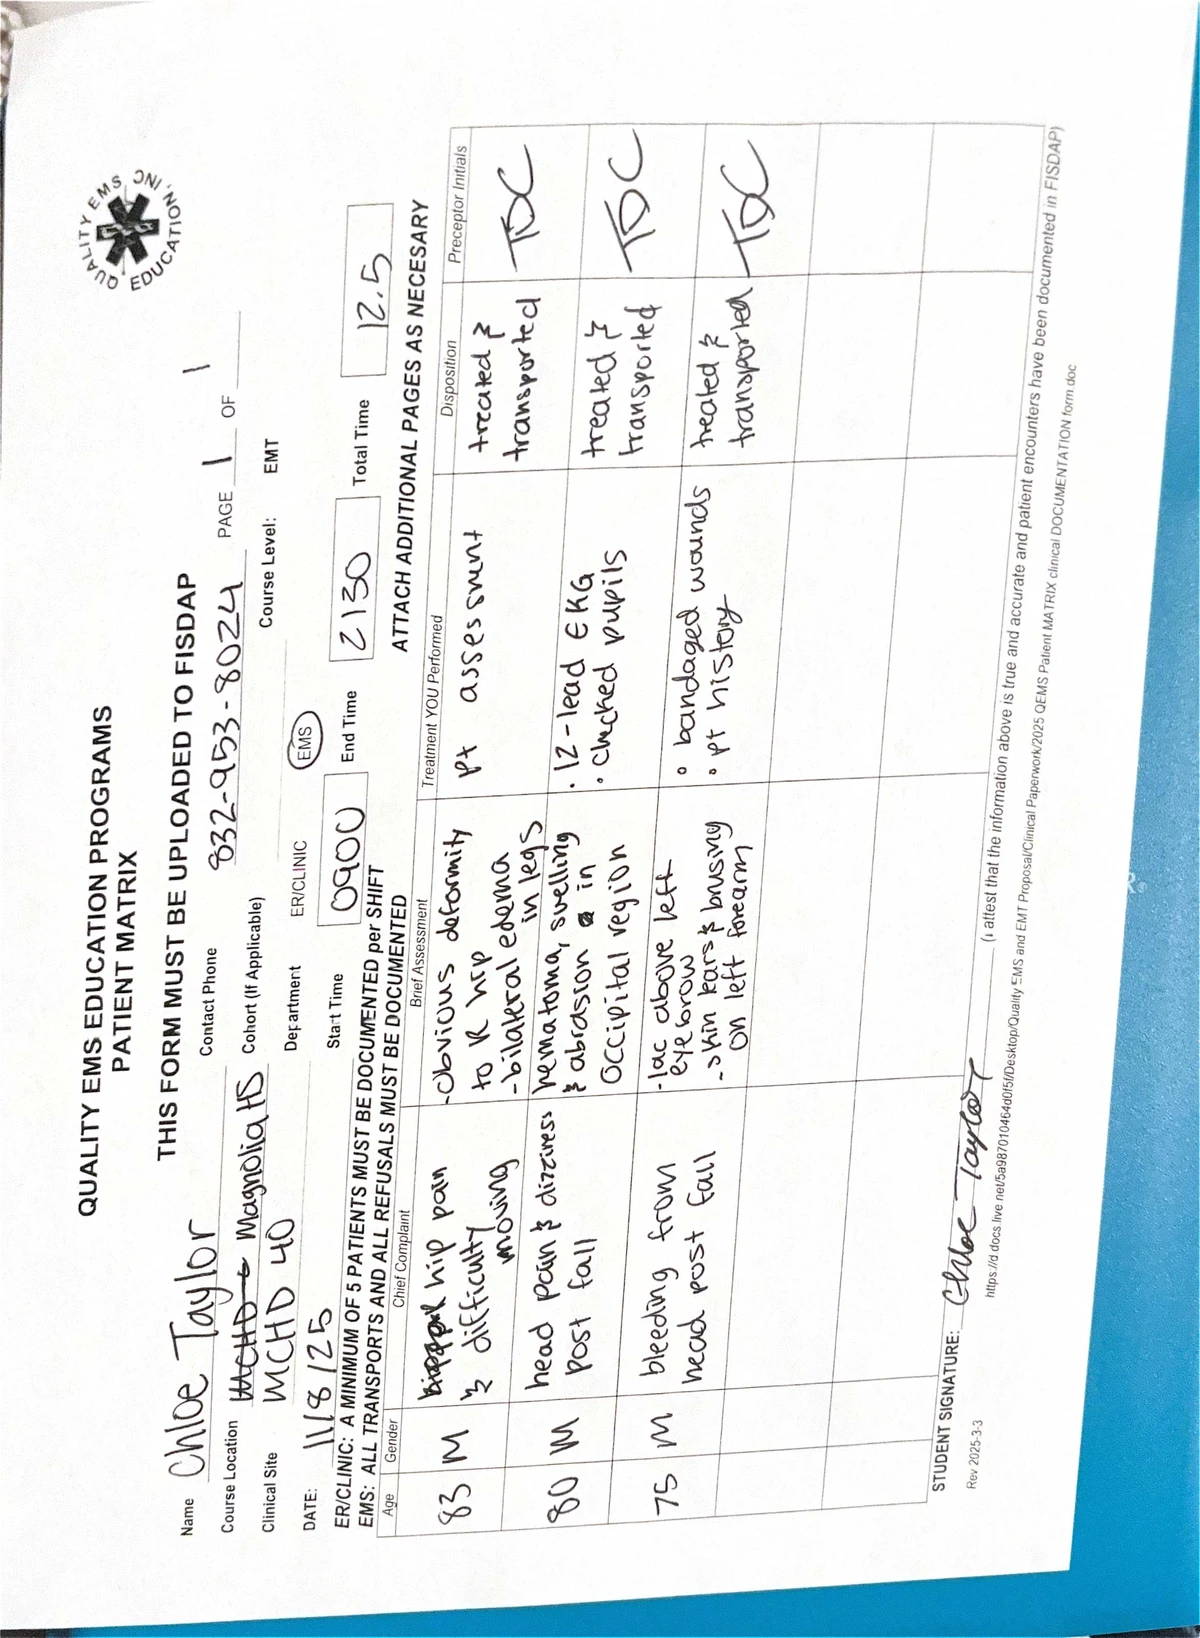 QUALITY EMS EDUCATION PROGRAMS
PATIENT MATRIX
QUALITY EMS EDUCATION, INC
THIS FORM MUST BE UPLOADED TO FISDAP
Name Chloe Taylor Contact Phone 832-953-8024 PAGE 1 OF 1
Course Location MCHD Magnolia HS Cohort (If Applicable) Course Level: EMT
Clinical Site MCHD 40 Department ER/CLINIC EMS
DATE: 11/8/25 Start Time 0900 End Time 2130 Total Time 12.5
ER/CLINIC: A MINIMUM OF 5 PATIENTS MUST BE DOCUMENTED per SHIFT
EMS: ALL TRANSPORTS AND ALL REFUSALS MUST BE DOCUMENTED ATTACH ADDITIONAL PAGES AS NECESARY
Age Gender Chief Complaint Brief Assessment Treatment YOU Performed Disposition Preceptor Initials
83 M hip pain
& difficulty
moving
-Obvious deformity
to R hip
-bilateral edema
in legs
Pt assessment
treated &
transported
TDC
80 M head pain & dizziness
post fall
hematoma, swelling
& abrasion in
occipital region
· 12-lead EKG
· checked pupils
treated &
transported
TDC
75 M bleeding from
head post fall
-lac above left
eyebrow
-skin tears & brusing
on left forearm
• bandaged wounds
• pt history
treated &
transported
TDC
STUDENT SIGNATURE: Chloe Taylor (I attest that the information above is true and accurate and patient encounters have been documented in FISDAP)
Rev 2025-3-3 https://d.docs.live.net/5a987010464d0f5f/Desktop/Quality EMS and EMT Proposal/Clinical Paperwork/2025 QEMS Patient MATRIX clinical DOCUMENTATION form.doc